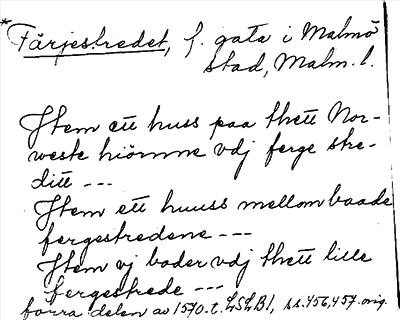 * Färjestredet, f. gata i Malmö
stad, Malm. l.
Jtem ett huss paa thett Nor-
weste hiörnne vdj ferge stre-
ditt ---
Jtem ett huuss mellom baade
fergestredene ---
Jtem vj boder vdj thett lille
fergestrede ---
förra delen av 1570. t. LSLB1, ss. 456, 457. orig.